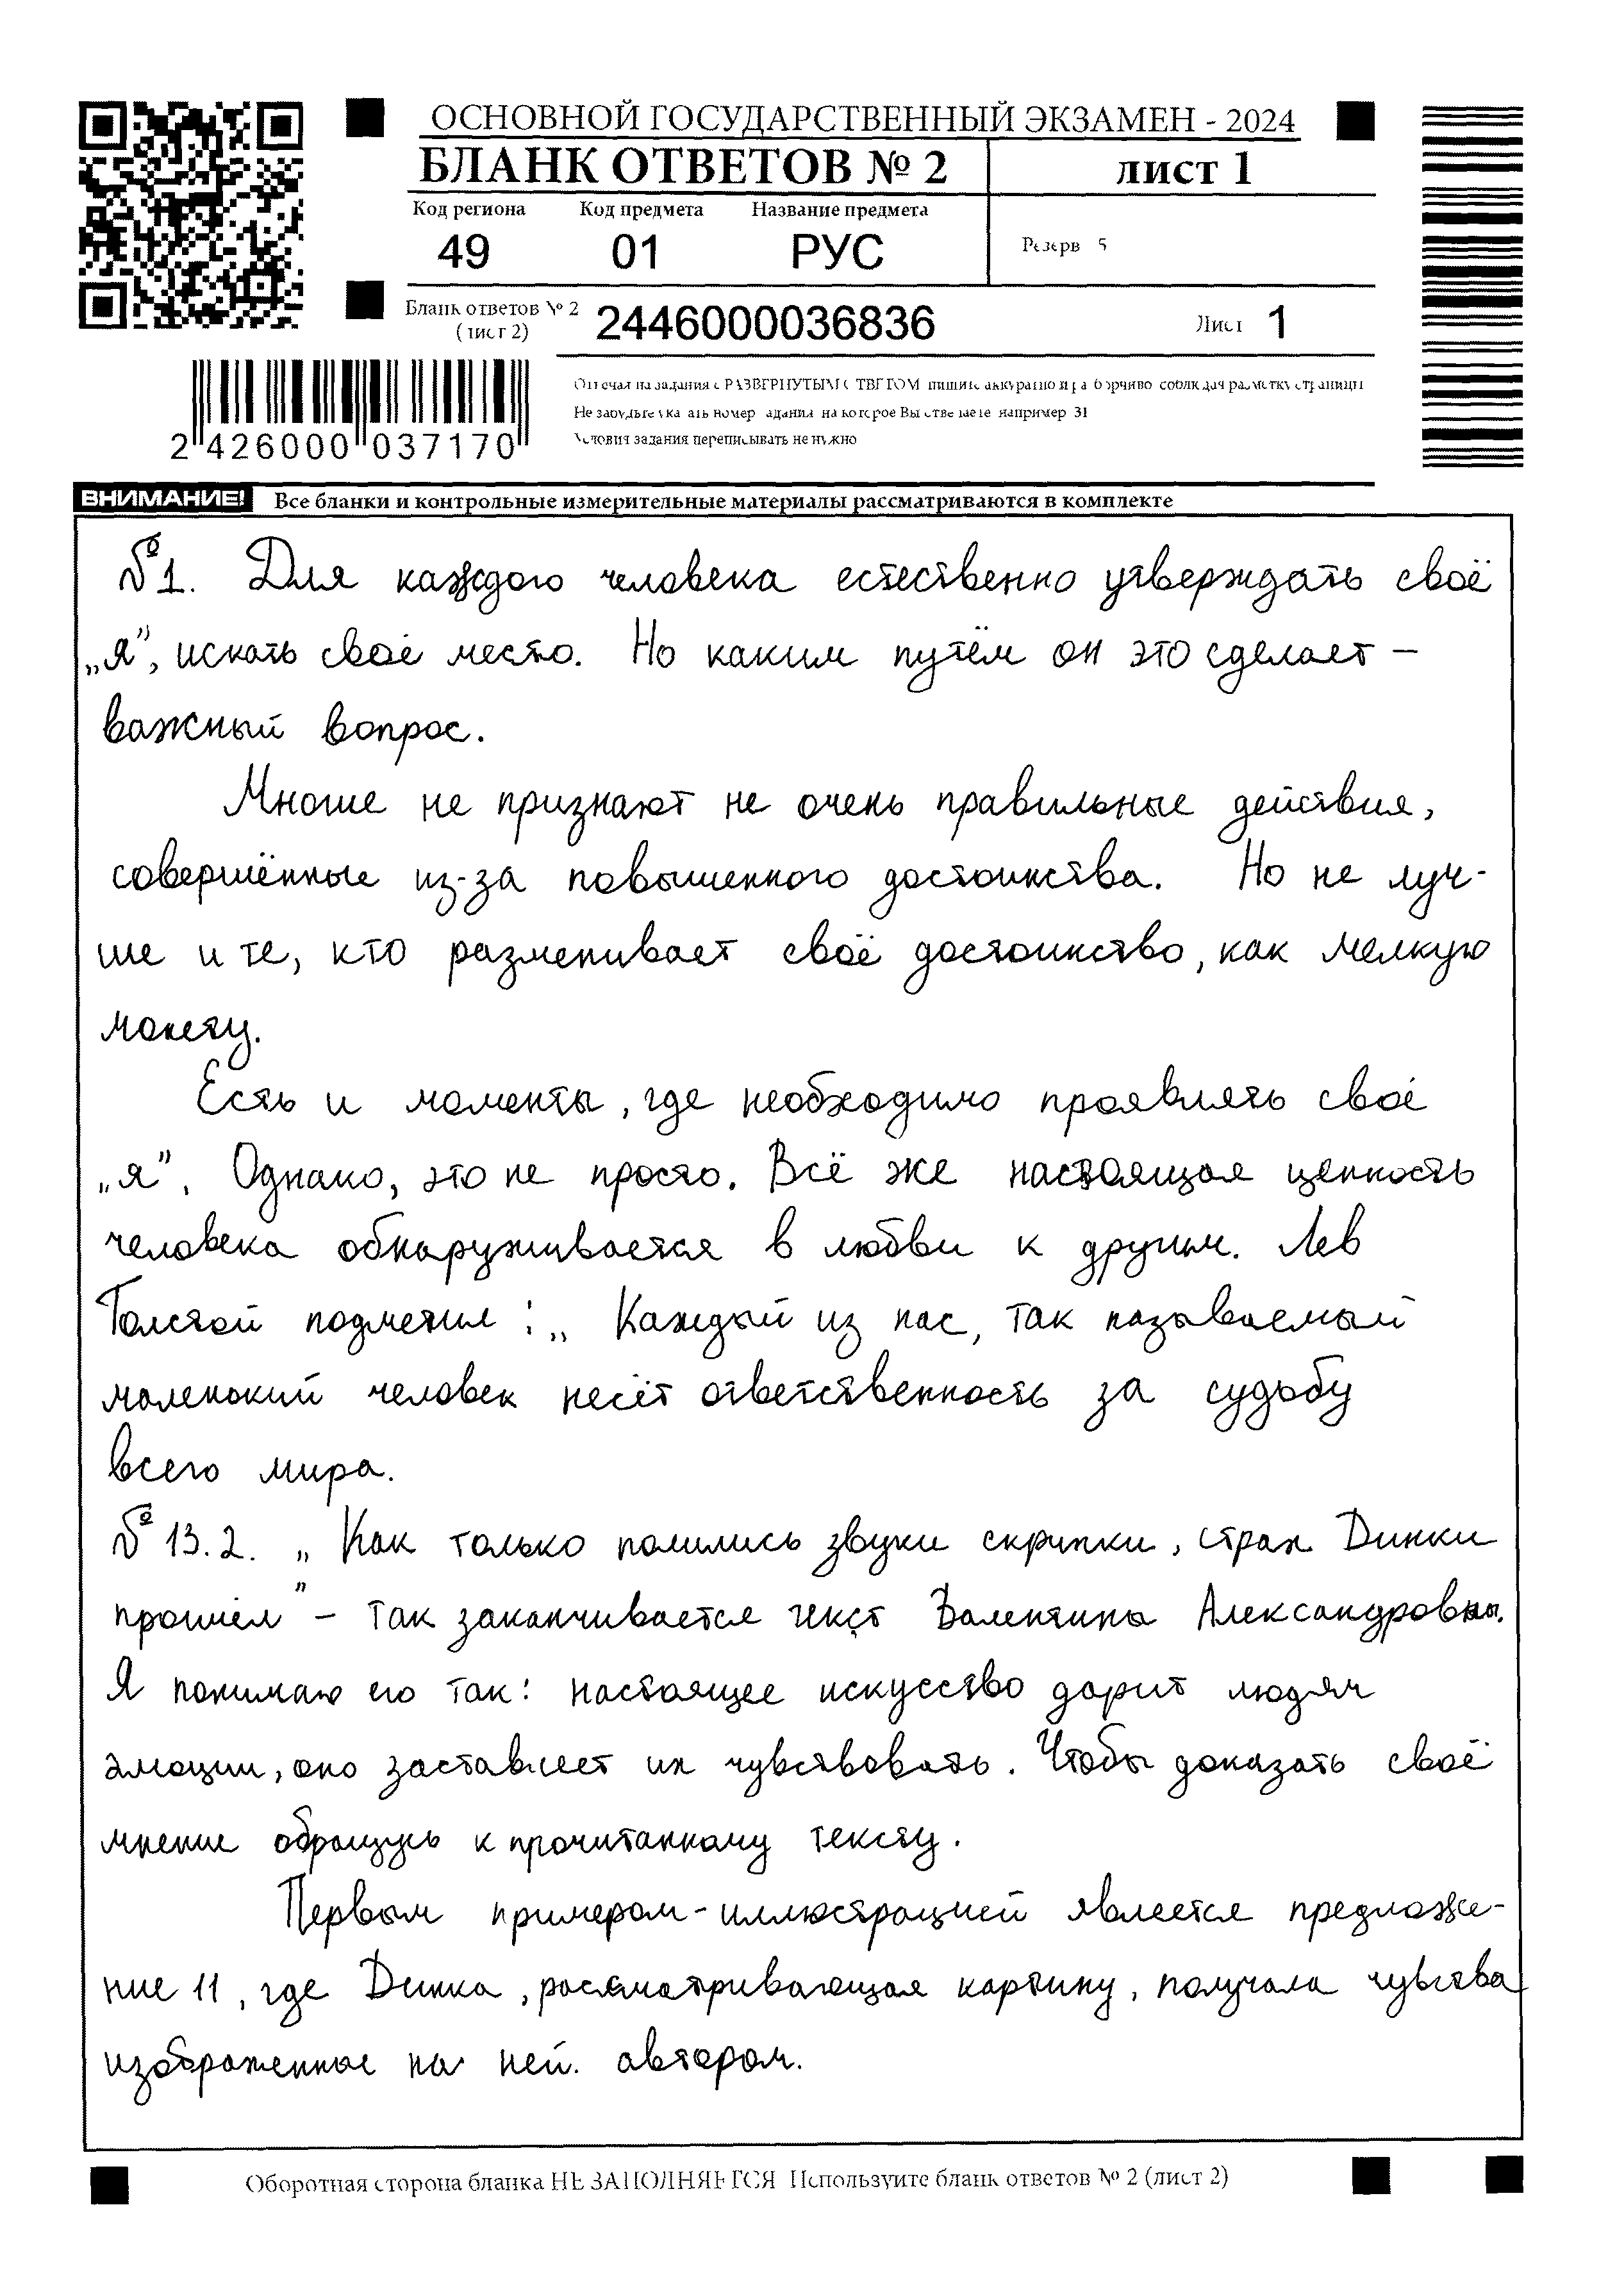 ОСНОВНОЙ ГОСУДАРСТВЕННЫЙ ЭКЗАМЕН - 2024
БЛАНК ОТВЕТОВ № 2
лист 1
Код региона Код предмета Название предмета
49 01 РУС
Резерв 5
Бланк ответов № 2
(лист 2)
2446000036836
Лист 1
2 426000 037170
Отвечая на задания с РАЗВЕРНУТЫМ ОТВЕТОМ пишите аккуратно и разборчиво соблюдая разметку страницы
Не забудьте указать номер задания на которое Вы отвечаете например 31
Условия задания переписывать не нужно
ВНИМАНИЕ! Все бланки и контрольные измерительные материалы рассматриваются в комплекте
№1. Для каждого человека естественно утверждать своё
„я”, искать своё место. Но каким путём он это сделает –
важный вопрос.
Многие не признают не очень правильные действия,
совершённые из-за повышенного достоинства. Но не луч-
ше и те, кто разменивает своё достоинство, как мелкую
монету.
Есть и моменты, где необходимо проявлять своё
„я”. Однако, это не просто. Всё же настоящая ценность
человека обнаруживается в любви к другим. Лев
Толстой подметил: „ Каждый из нас, так называемый
маленький человек несёт ответственность за судьбу
всего мира.
№ 13.2. „ Как только полились звуки скрипки, страх Динки
прошёл” – так заканчивается текст Валентины Александровны.
Я понимаю его так: настоящее искусство дарит людям
эмоции, оно заставляет их чувствовать. Чтобы доказать своё
мнение обращусь к прочитанному тексту.
Первым примером-иллюстрацией является предложе-
ние 11, где Динка, рассматривающая картину, получала чувства
изображенные на ней. автором.
Оборотная сторона бланка НЕ ЗАПОЛНЯЕТСЯ Используйте бланк ответов № 2 (лист 2)